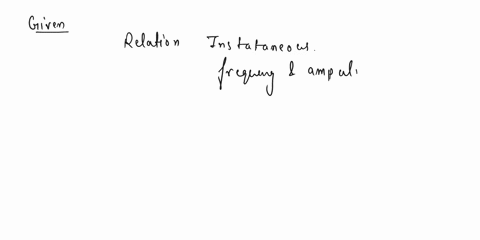 Given
Relation Instataneous.
frequency & ampali